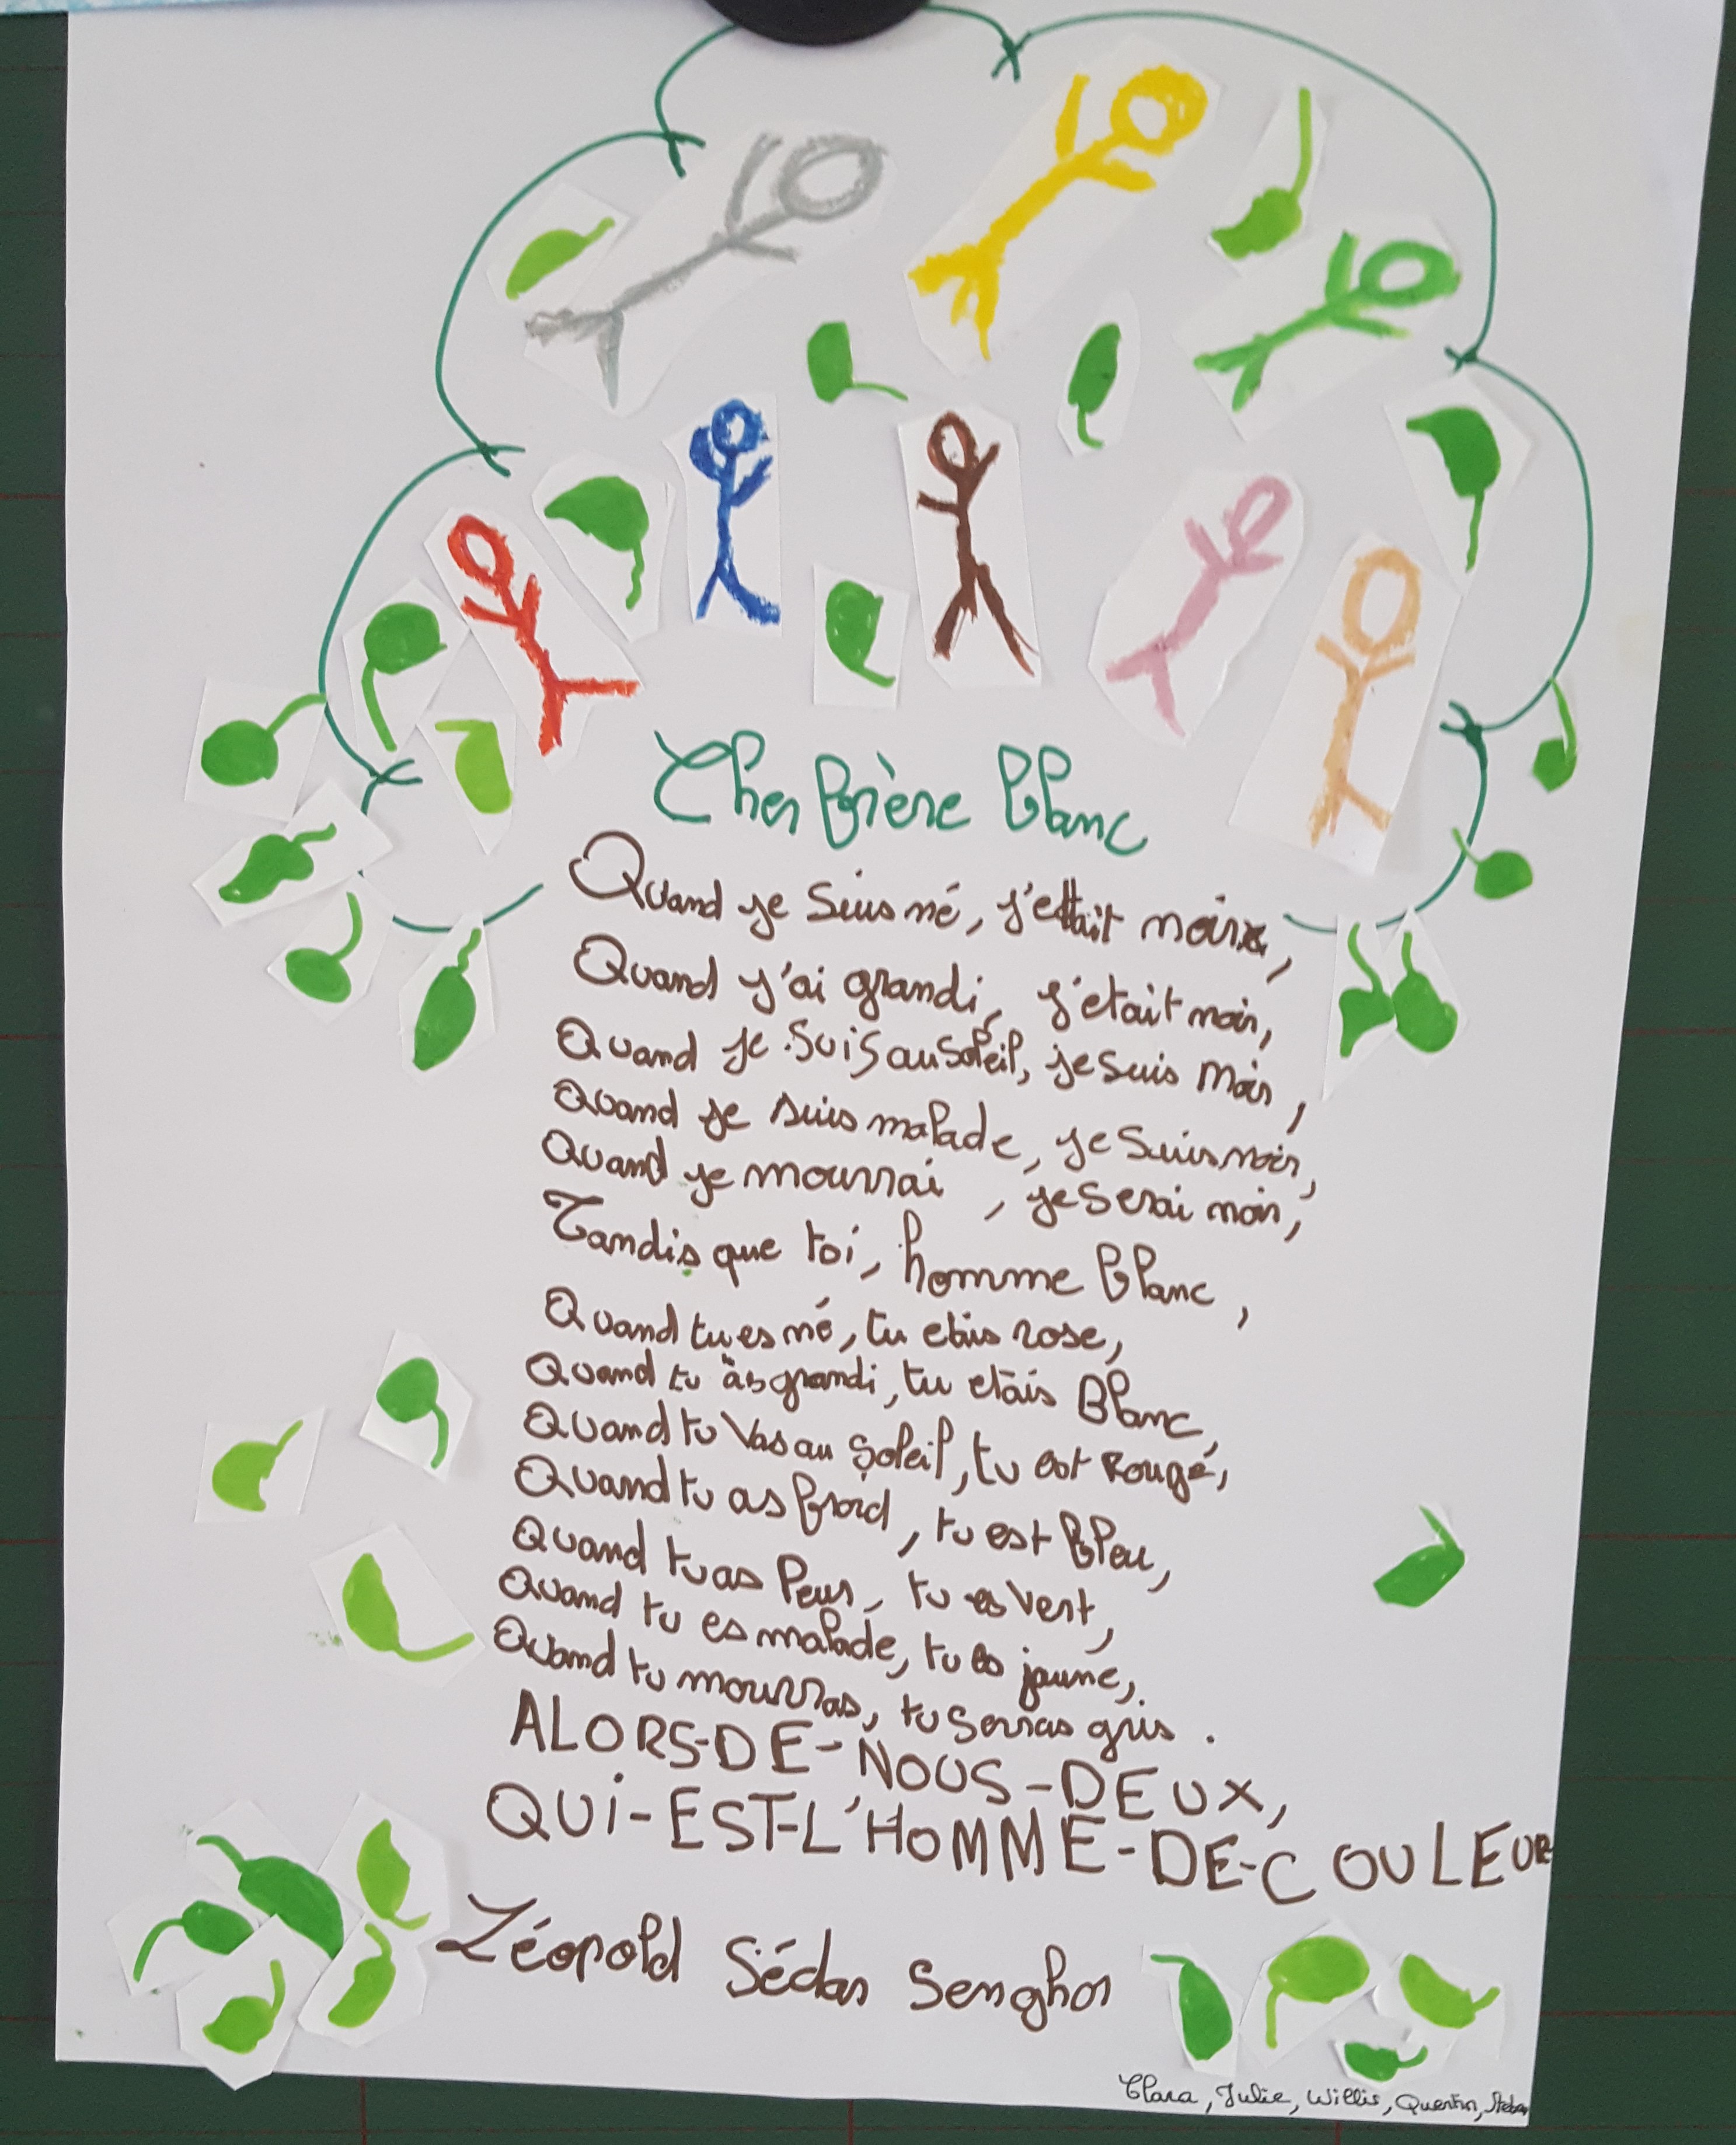 Cher frère blanc
Quand je suis né, j'ettait noir,
Quand j'ai grandi, j'etait noir,
Quand je suis au soleil, je suis noir,
Quand je suis malade, je suis noir,
Quand je mourrai, je serai noir,
Tandis que toi, homme blanc,
Quand tu es né, tu etais rose,
Quand tu as grandi, tu etais Blanc,
Quand tu vas au soleil, tu est rouge,
Quand tu as froid, tu est bleu,
Quand tu as peur, tu es vert,
Quand tu es malade, tu es jaune,
Quand tu mourras, tu serras gris.
ALORS-DE-NOUS-DEUX,
QUi-EST-L'HOMME-DE-COULEUR
Léopold Sédar Senghor
Clara, Julie, Willis, Quentin,